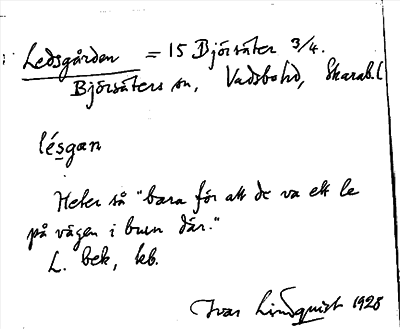 Ledsgården = 15 Björsäter 3/4.
Björsäters sn, Vadsbo hd, Skarab. l
lésgan
Heter så "bara för att de va ett le
på vägen i byn där."
L. bek, kb.
Ivar Lindquist 1928